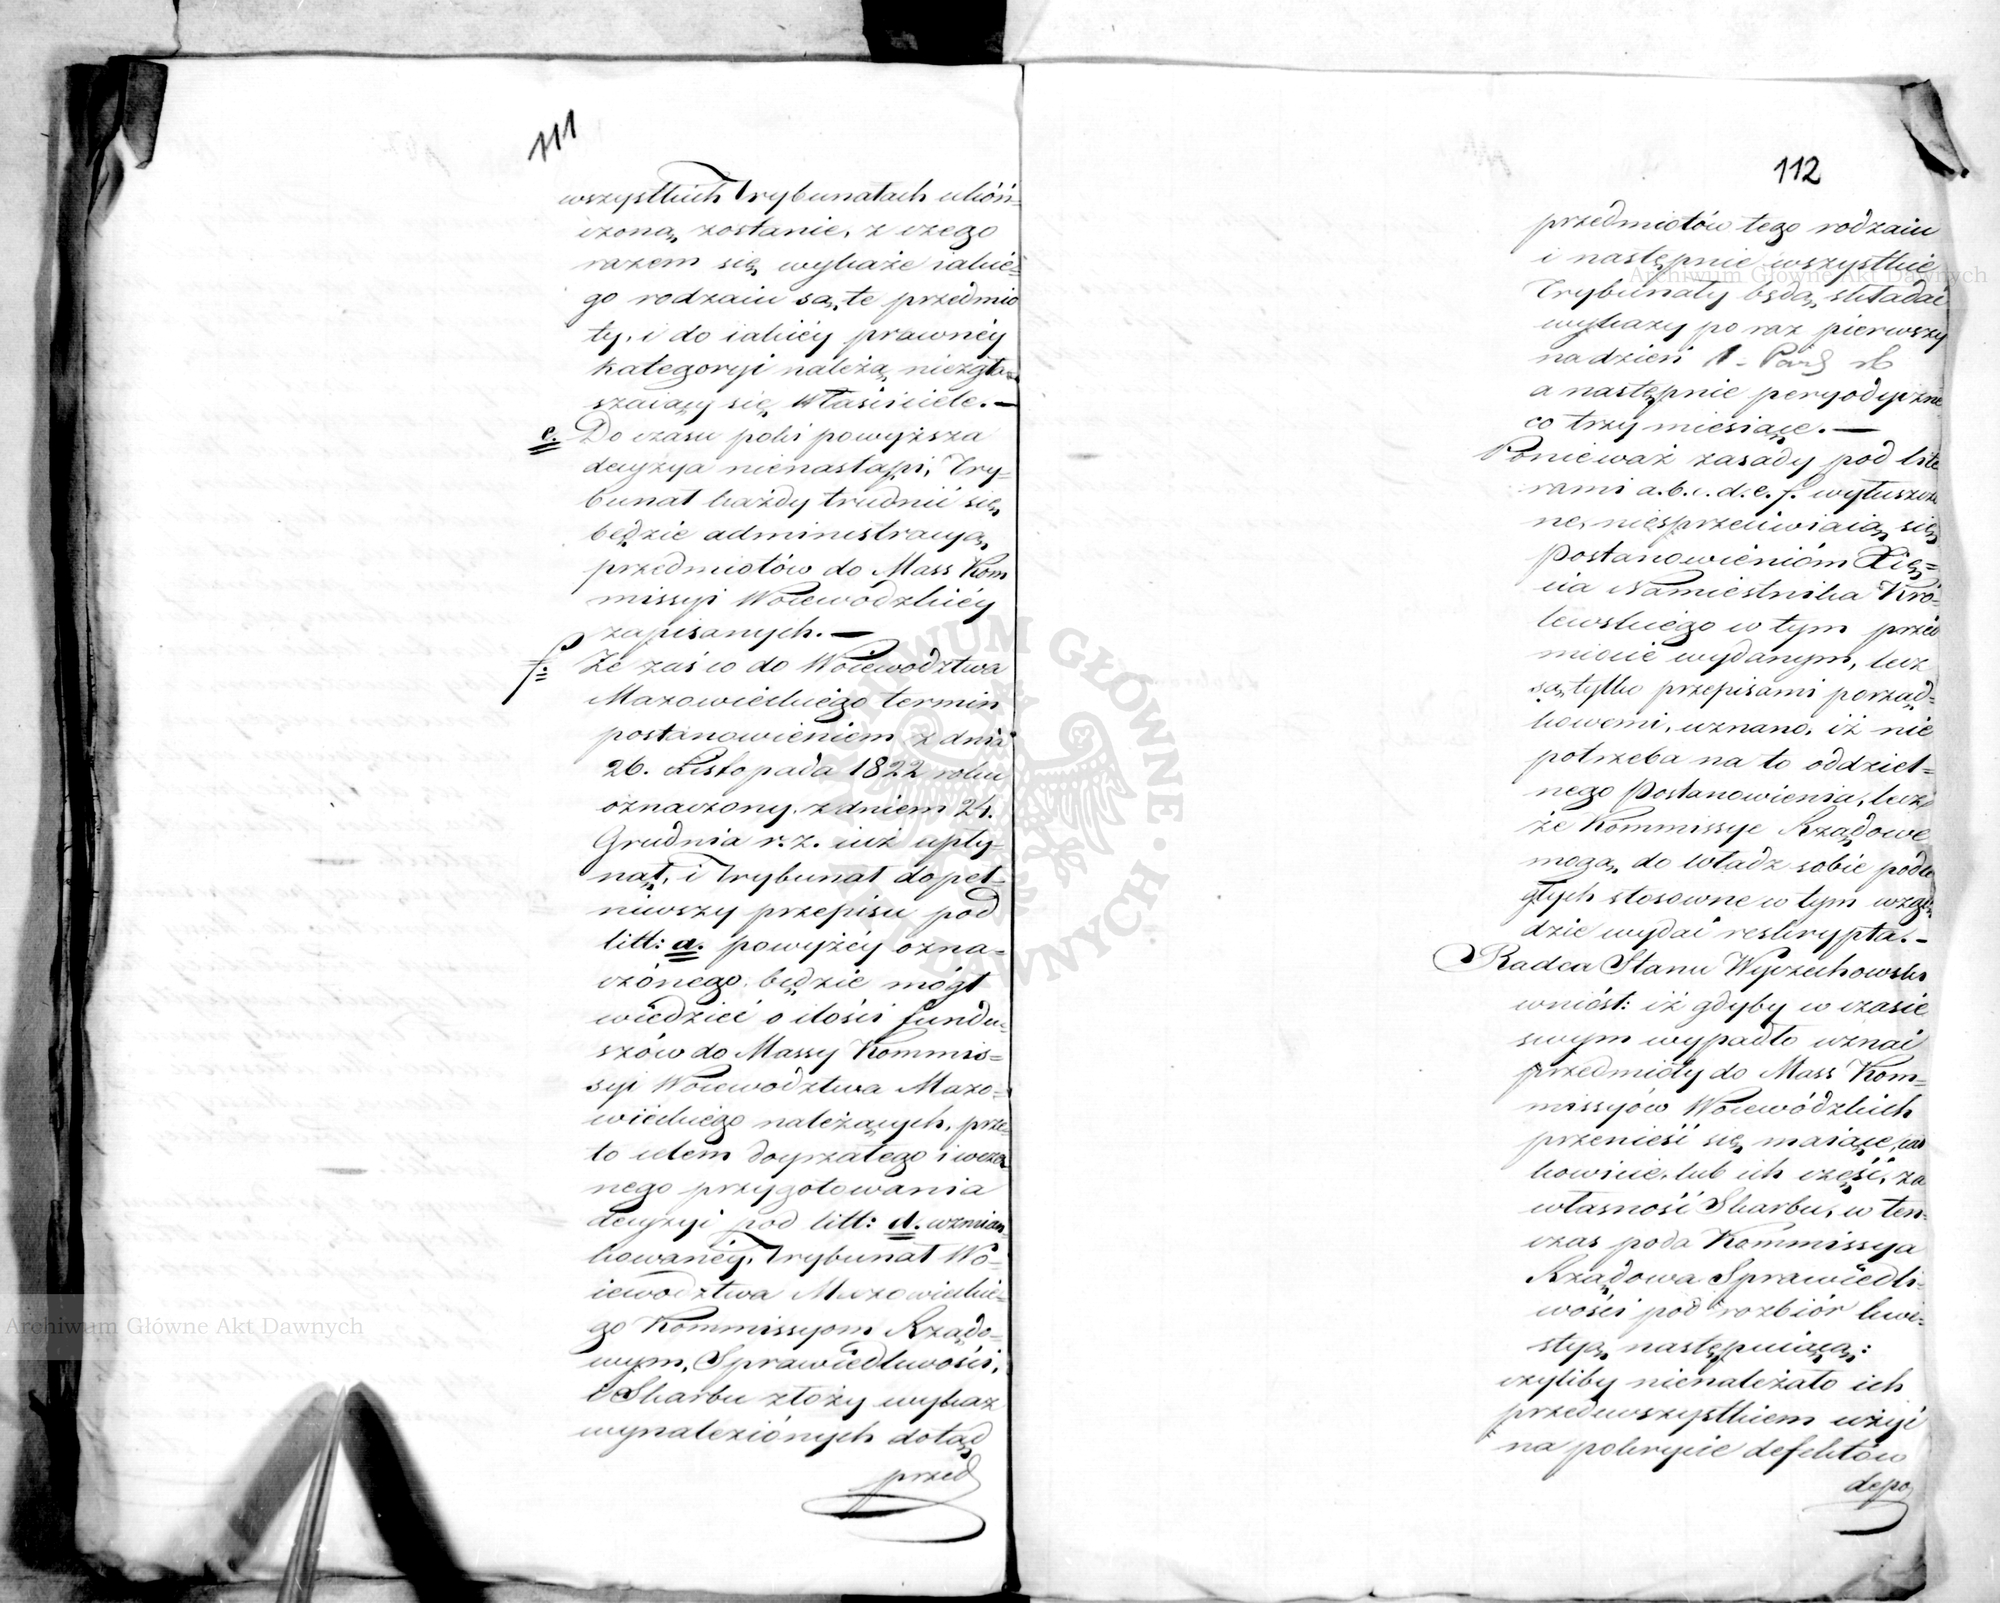 111
wszystkich Trybunałach ukoń-
czoną zostanie, z czego
razem się wykaże iakie-
go rodzaiu są, te przedmio
ty, i do iakiéy prawnéy
kategoryi należą niezgła-
szaiący się Właściciele. —
e. Do czasu poki powyższa
decyzya nienastąpi, Try-
bunał każdy trudnić się
będzie administracyą
przedmiotów do Mass Kom
missyi Woiewódzkiéy
zapisanych. —
f. Że zaś co do Woiewodztwa
Mazowieckiego termin
postanowieniem z dnia
26. Listopada 1822 roku
oznaczony, z dniem 24.
Grudnia r. z. iuż upły-
nął, i Trybunał dopeł-
niwszy przepisu pod
litt: a. powyżéy ozna-
czónego, będzie mógł
wiedzieć o ilości fundu-
szów do Massy Kommis-
syi Woiewodztwa Mazo-
wieckiego należących, prze-
to celem doyrzałego i wcze
nego przygotowania
decyzyi pod litt: d. wzmian
kowanéy, Trybunał Wo-
iewodztwa Mazowieckie-
go Kommissyom Rządo-
wym, Sprawiedliwości,
i Skarbu złoży wykaz
wynaleziónych dotąd
przed
112
przedmiotów tego rodzaiu
i następnie wszystkie
Trybunały będą składać
wykazy po raz pierwszy
na dzień 1. Paźd rb
a następnie peryodyczne
co trzy miesiące. —
Ponieważ zasady pod lite
rami a. b. c. d. e. f. wyłuszczo
ne, niesprzeciwiaią się
Postanowienióm Xię-
cia Namiestnika Kró-
lewskiego w tym przed
miocie wydanym, lecz
są tylko przepisami porząd-
kowemi, uznano, iż nie
potrzeba na to oddziel-
nego Postanowienia, lecz
że Kommissye Rządowe
mogą do władz sobie podle
głych stosowne w tym wzglę
dzie wydać reskrypta. —
Radca Stanu Wyczechowski
wniósł: iż gdyby w czasie
swym wypadło uznać
przedmioty do Mass Kom-
missyów Woiewódzkich
przenieść się maiące, cał
kowicie, lub ich część, za
własność Skarbu, w ten-
czas poda Kommissya
Rządowa Sprawiedli-
wości pod rozbiór kwe-
styą następuiącą:
czyliby nienależało ich
przedewszystkiem użyć
na pokrycie defektów
depo
Archiwum Główne Akt Dawnych
Archiwum Główne Akt Dawnych
ARCHIWUM GŁÓWNE AKT DAWNYCH